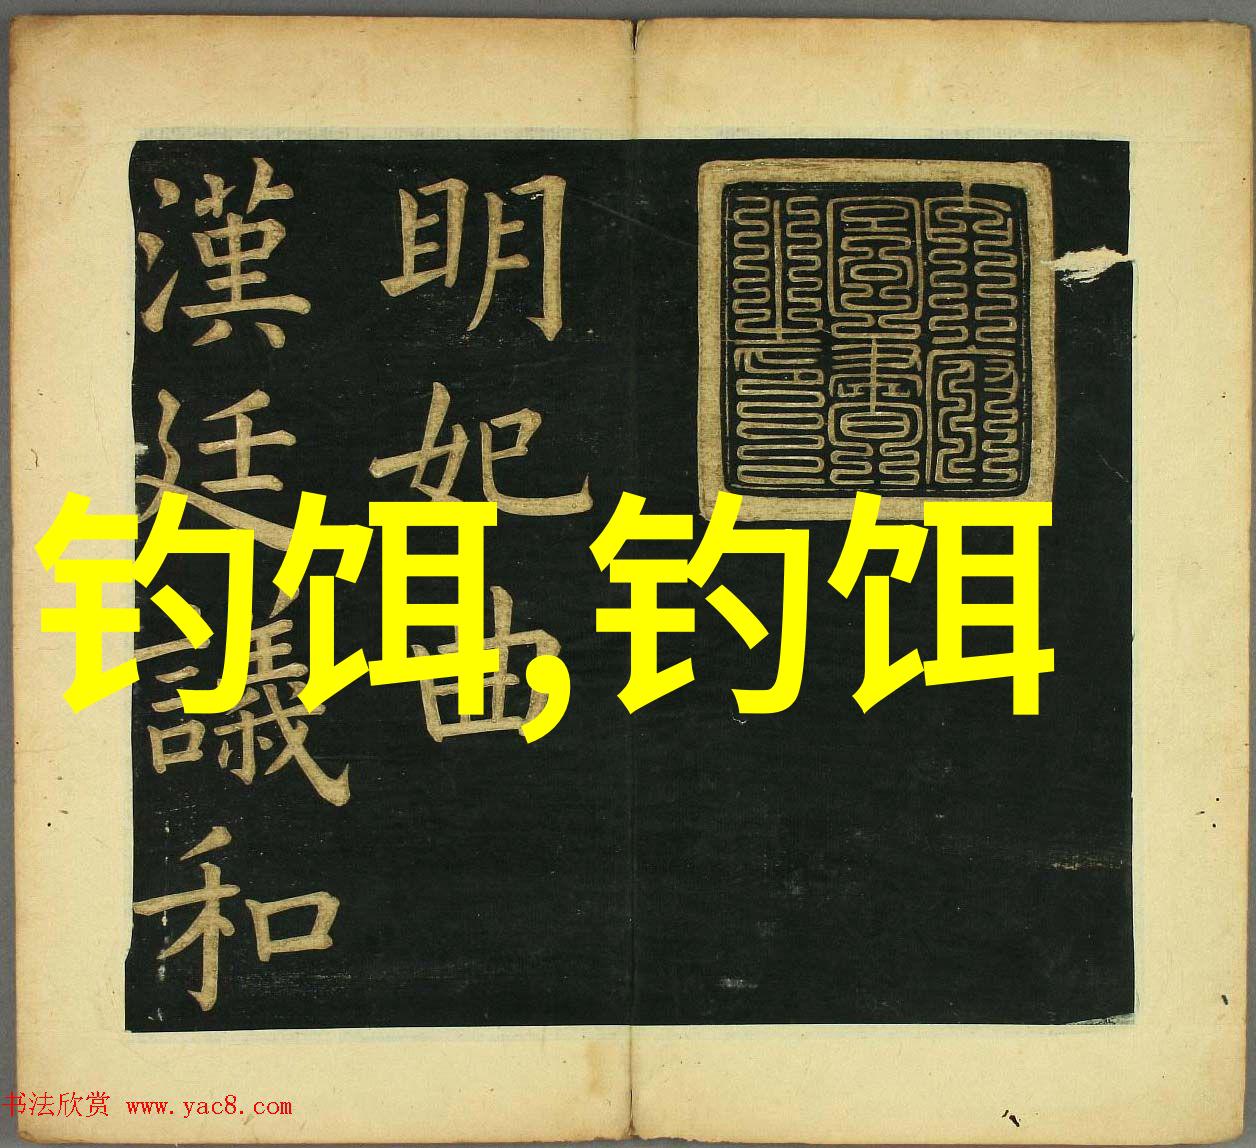 明妃曲
漢廷議和
钓饵,钓饵
书法欣赏 www.yac8.com